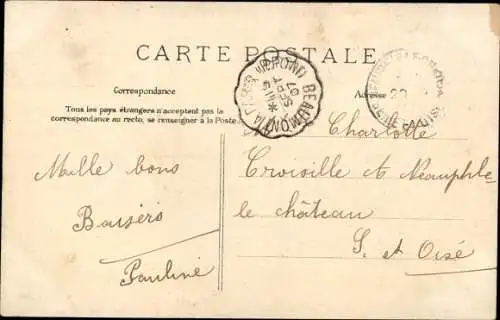 CARTE POSTALE
Correspondance
Adresse
Tous les pays étrangers n'acceptent pas la
correspondance au recto, se renseigner à la Poste.
BEAUMONT
SEPT
07
Mille bons
Baisers
Pauline
Charlotte
Croisille à Neauphle-
le château
S. et Oise